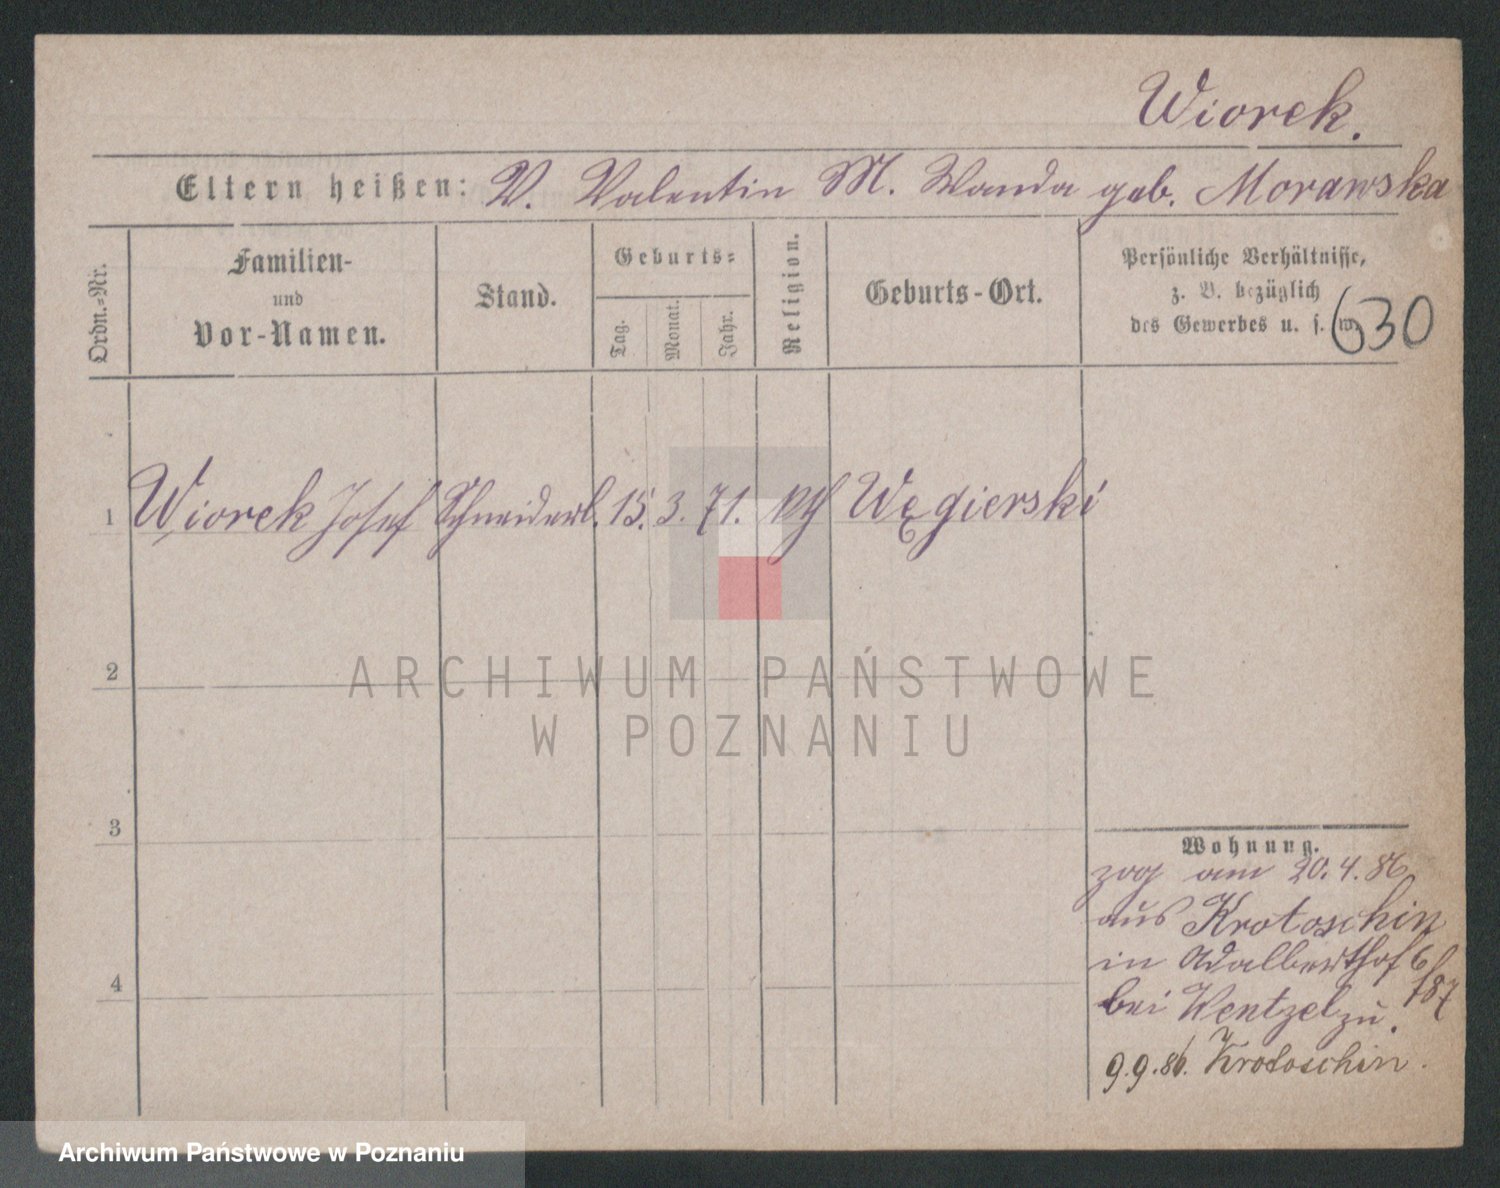 Wiorek.
Eltern heißen: V. Valentin M. Wanda geb. Morawska
Ordn.-Nr.
Familien-
und
Vor-Namen.
Stand.
Geburts-
Tag.
Monat.
Jahr.
Religion.
Geburts-Ort.
Persönliche Verhältnisse,
z. B. bezüglich
des Gewerbes u. s. w.
630
1 Wiorek Josef Schneiderl. 15. 3. 71. kth Węgierski
2
3
4
Wohnung.
zog am 20.4.86
aus Krotoschin
in Adalberthof 6
bei Wentzel zu.
/87
9.9.86. Krotoschin.
ARCHIWUM PAŃSTWOWE
W POZNANIU
Archiwum Państwowe w Poznaniu